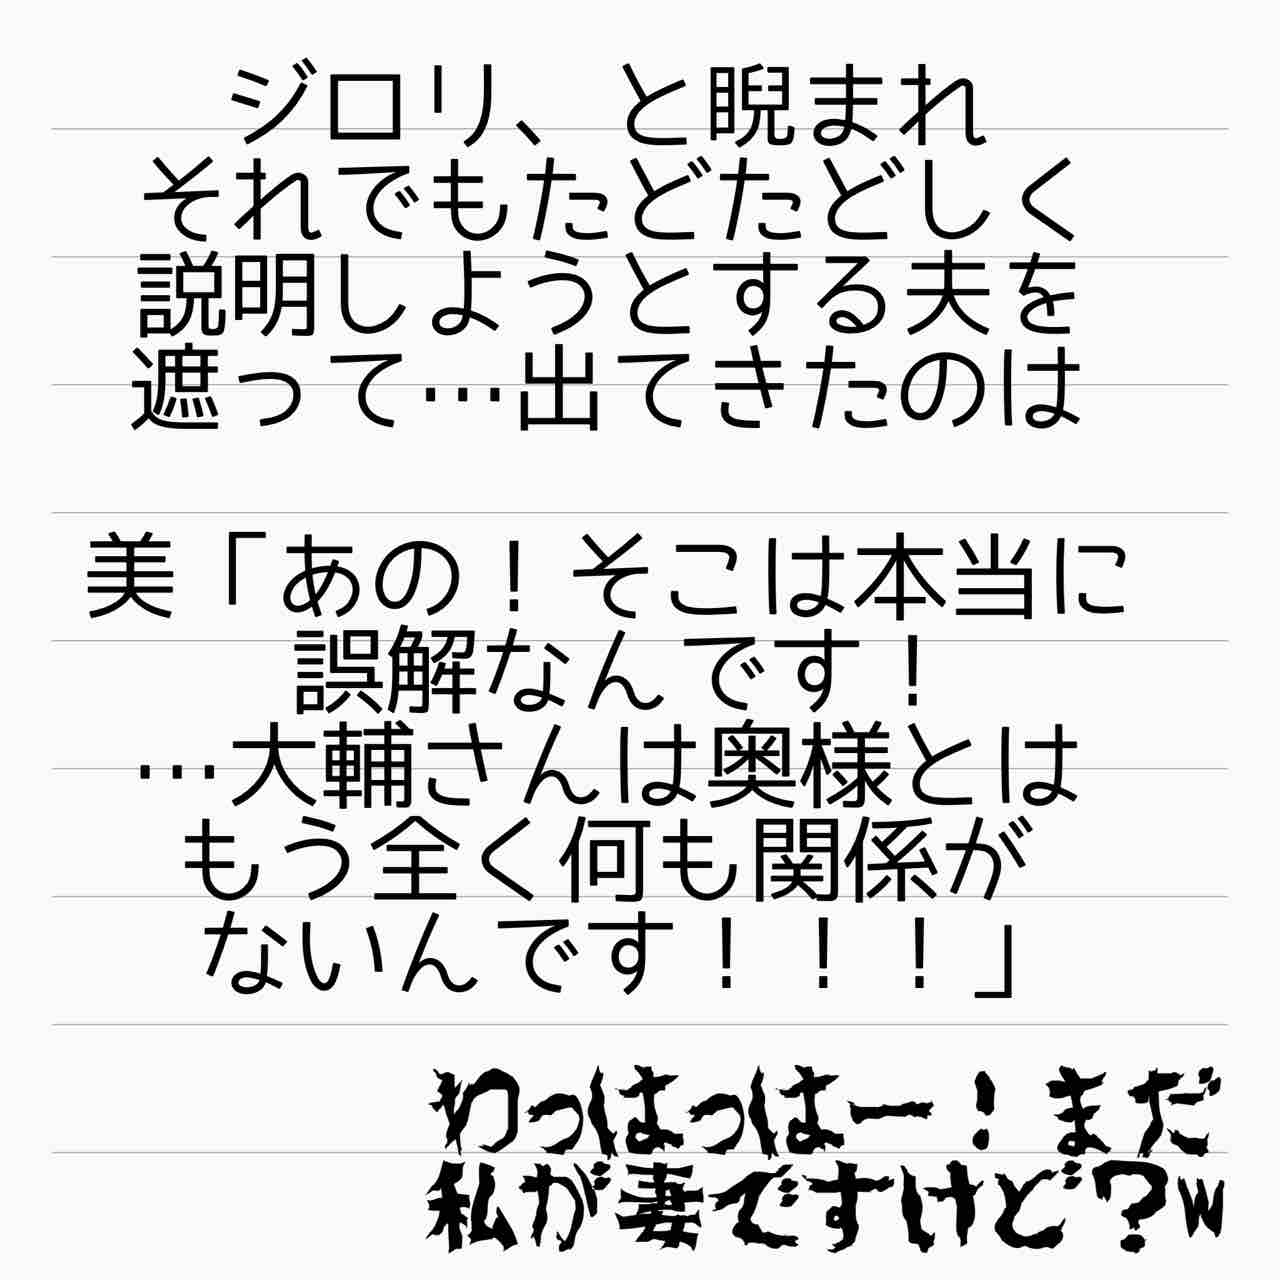 ジロリ、と睨まれ
それでもたどたどしく
説明しようとする夫を
遮って…出てきたのは
美「あの！そこは本当に
誤解なんです！
…大輔さんは奥様とは
もう全く何も関係が
ないんです！！！」
わっはっはー！まだ
私が妻ですけど？w